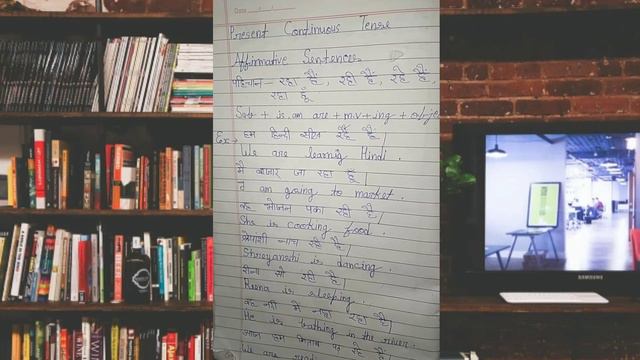 Date
Present Continuous Tense
Affirmative Sentences
पहिचान - रहा है, रही है, रहे हैं,
रहा हूँ
Sub + is, am are + m.v + ing + obje
Ex - हम हिन्दी सीख रहे हैं|
We are learnig Hindi.
मैं बाजार जा रहा हूँ|
I am going to market.
वह भोजन पका रही है|
She is cooking food.
श्रेयांशी नाच रही है|
Shreyanshi is dancing.
रीना सो रही है|
Reena is sleeping.
वह नदी में नहा रहा है|
He is bathing in the river.
आज हम किताब पढ़ रहे हैं|
We are read
SAMSUNG